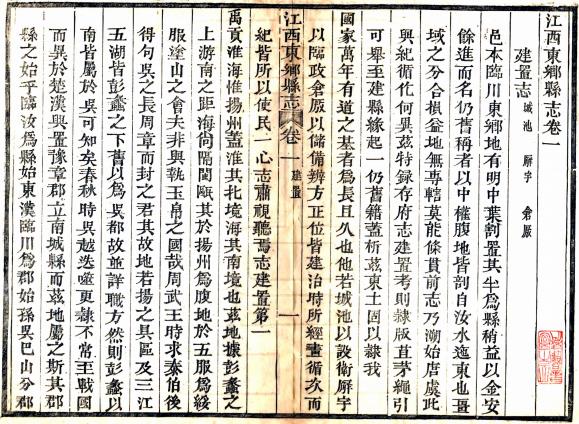 江西東鄉縣志卷一
建置志 城池 廨宇 倉厫
邑本臨川東鄉地有明中葉割置其半爲縣稍益以金安
餘進而名仍舊稱者以中權腹地皆剖自汝水迤東也畺
域之分合損益地無專轄莫能條貫前志乃溯始唐虞此
興紀循化何異茲特錄存府志建置考則隸版直茅繩引
可舉至建縣緣起一仍舊籍蓋析茲東土固以隸我
國家萬年有道之基者爲長且久也他若城池以設衛廨宇
以臨政倉厫以儲備辨方正位皆建治時所經畫循次而
紀皆所以使民一心志肅視聽焉志建置第一
江西東鄉縣志 卷一 建置 一
禹貢淮海惟揚州蓋淮其北境海其南境也茲地據彭蠡之
上游南之距海尚隔閩甌其於揚州爲腹地於五服爲綏
服塗山之會夫非與執玉帛之國哉周武王時求泰伯後
得句吳之長周章而封之君其故地若揚之具區及三江
五湖皆彭蠡之下舊以爲吳都故並詳職方然則彭蠡以
南皆屬於吳可知矣春秋時吳越迭噬更隸不常至戰國
而異於楚漢興置豫章郡立南城縣而茲地屬之斯其郡
縣之始乎臨汝爲縣始東漢臨川爲郡始孫吳巴山分郡